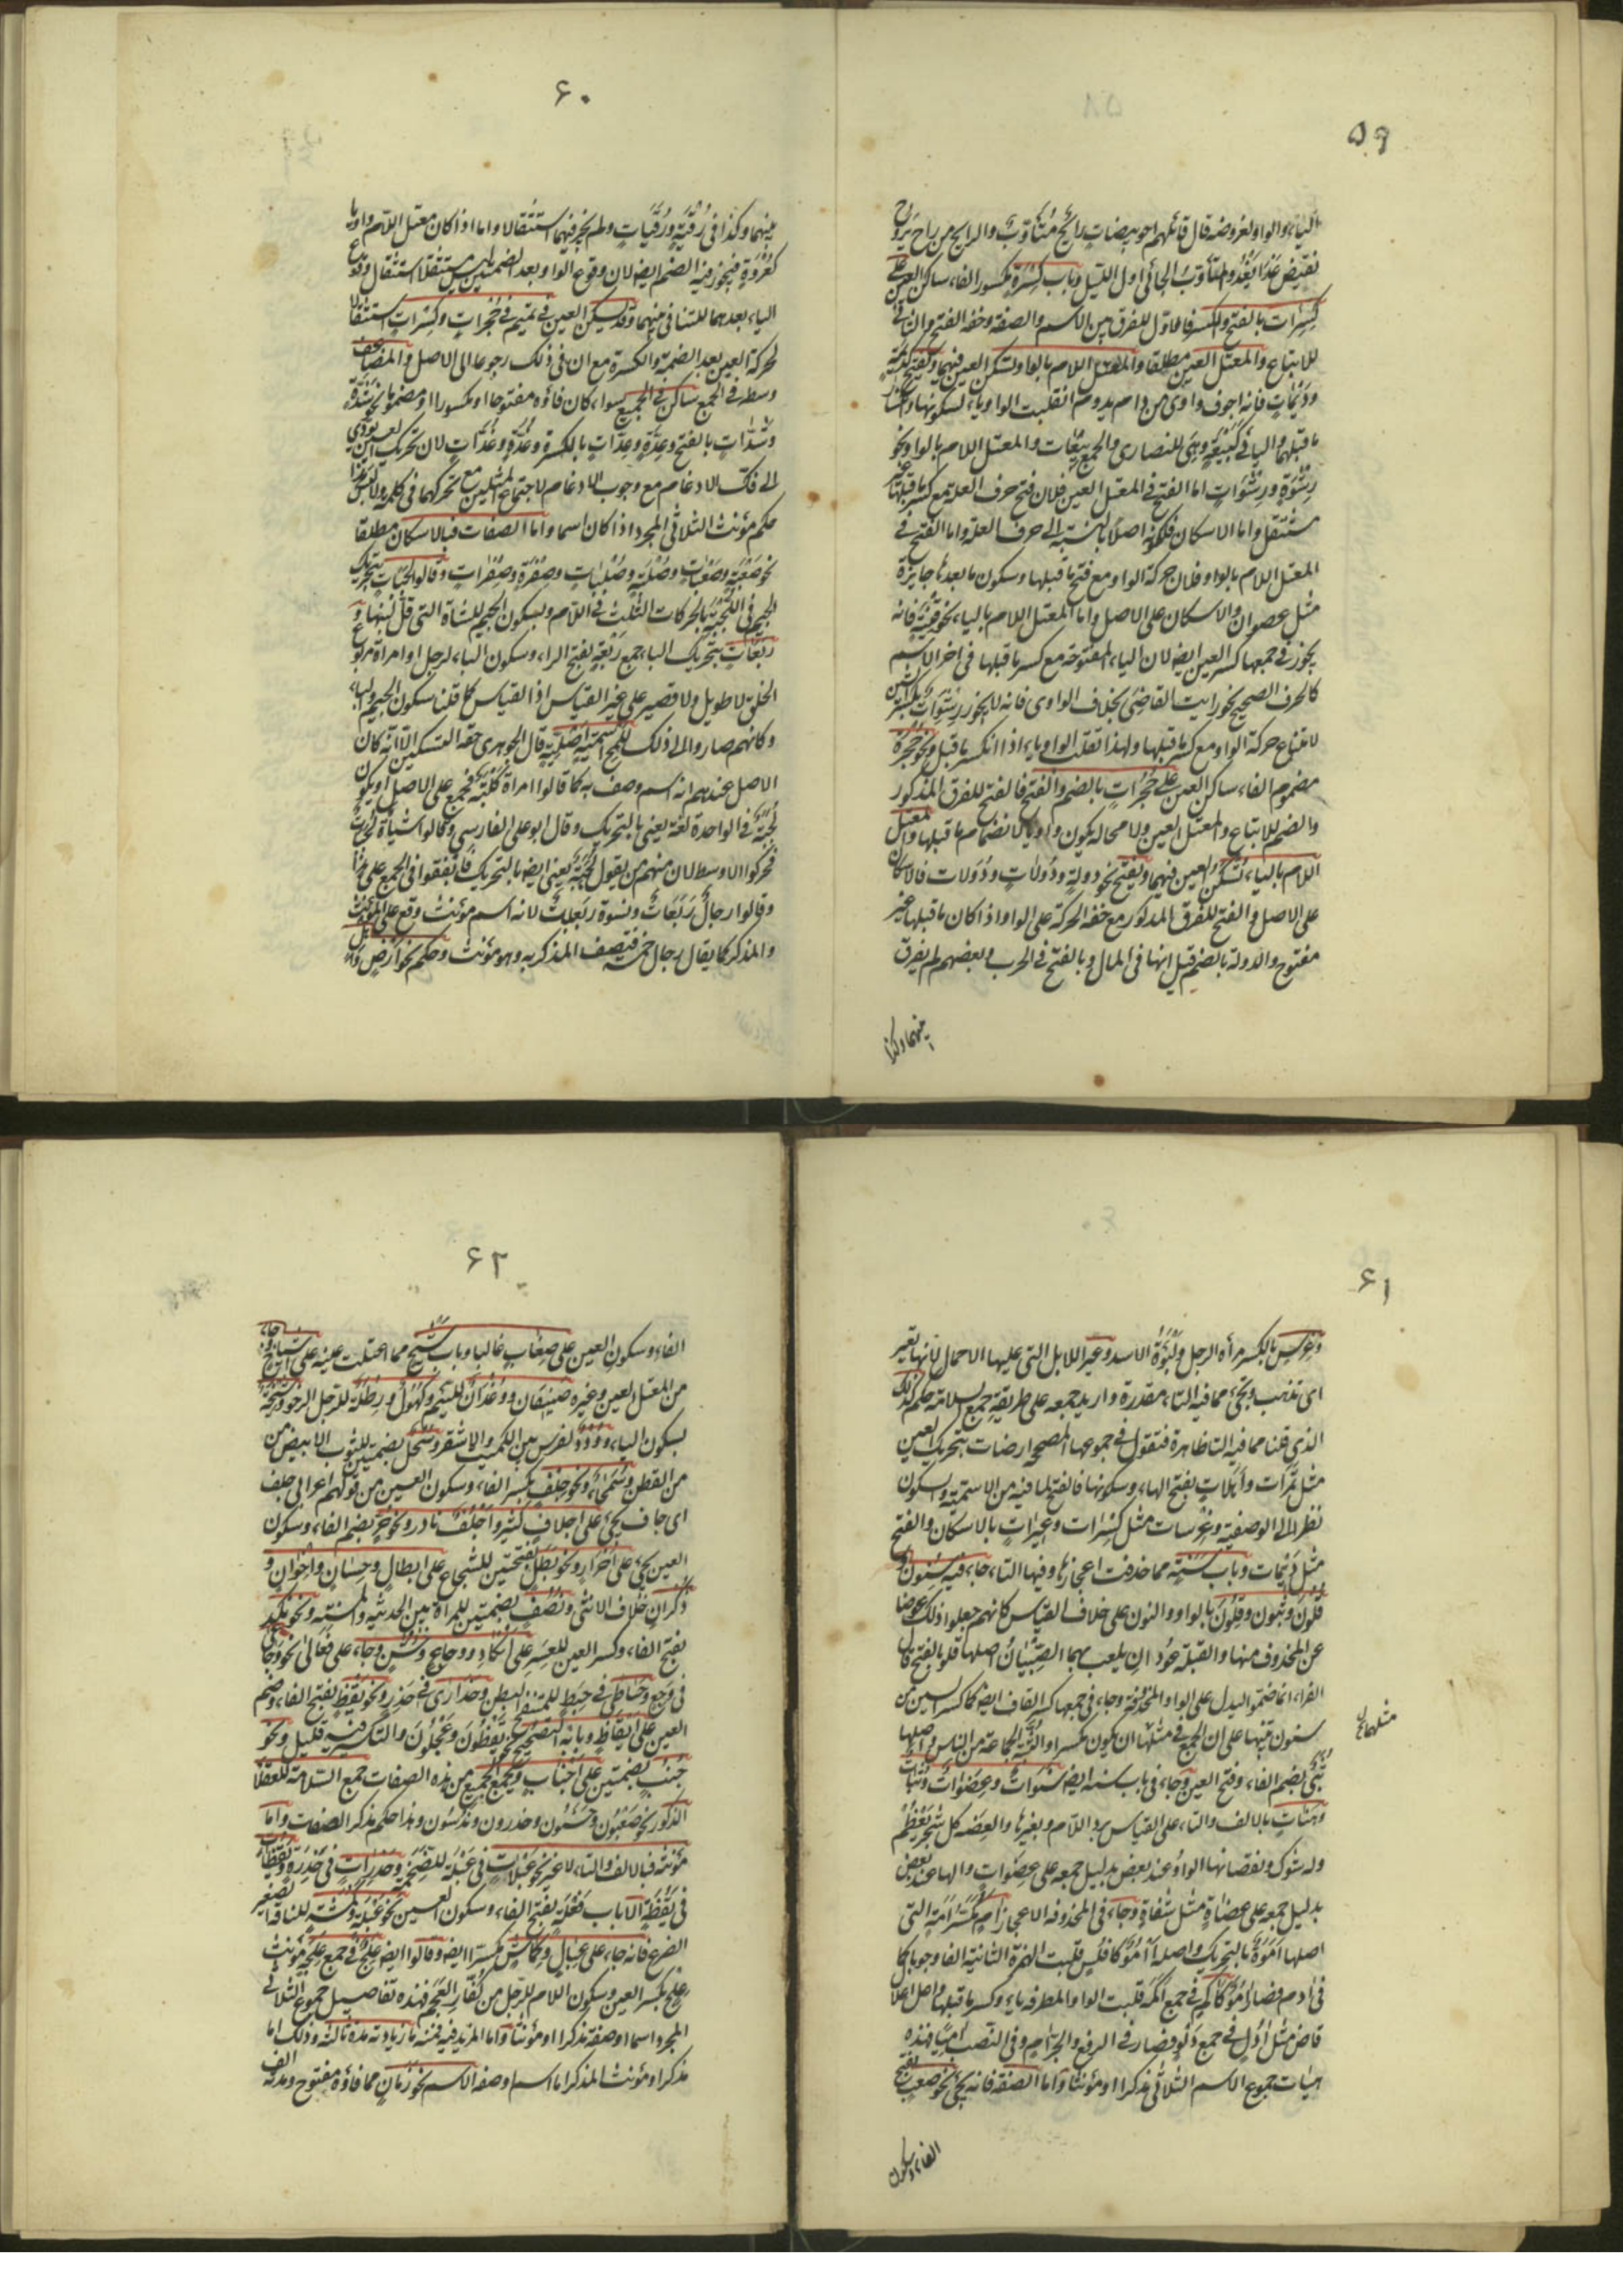 ٥٩
الياء والواو لعروضه قال قائلهم اخو بيضات رائح متأوب والرايح من راح يروح
نقيض غدا يغدو والمتأوب الجائي اول الليل وباب كسرة مكسور الفاء ساكن العين على
كسرات بالفتح والكسر فالاول للفرق بين الاسم والصفة وخفة الفتح والثاني
للاتباع والمعتل العين مطلقا والمعتل اللام بالواو تسكن العين فيهما وتفتح كديمة
وديمات فانه اجوف واوى من دام يدوم انقلبت الواو ياء لسكونها وانكسار
ما قبلها والياء في كبيعة وهى للنصارى والجمع بيعات والمعتل اللام بالواو نحو
رشوة ورشوات اما الفتح في المعتل العين فلان فتح حرف العلة مع كسر ما قبلها غير
مستثقل واما الاسكان فلكونه اصلا بالنسبة الى حرف العلة واما الفتح في
المعتل اللام بالواو فلان حركة الواو مع فتح ما قبلها وسكون ما بعدها جايزة
مثل عصوان والاسكان على الاصل واما المعتل اللام بالياء نحو قنية فانه
يجوز في جمعها كسر العين ايضا لان الياء المفتوحة مع كسر ما قبلها في اخر الاسم
كالحرف الصحيح نحو رايت القاضى بخلاف الواوى فانه لا يجوز رشوات بكسر الشين
لامتناع حركة الواو مع كسر ما قبلها ولهذا تقلب الواو ياء اذا انكسر ما قبل ونحو حجرة
مضموم الفاء ساكن العين على حجرات بالضم والفتح فالفتح للفرق المذكور
والضم للاتباع والمعتل العين ولا محالة يكون واويا لانضمام ما قبلها والمعتل
اللام بالياء تسكن العين فيهما وتفتح نحو دولة ودولات ودولات فالاسكان
على الاصل والفتح للفرق المذكور مع خفة الحركة على الواو اذا كان ما قبلها غير
مفتوح والدولة بالضم قيل انها في المال وبالفتح في الحرب وبعضهم لم يفرق
بينهما وكذا
٦٠
بينهما وكذا في رقية ورقيات ولم يجز فيهما استثقالا واما اذا كان معتل اللام واويا
كعروة فيجوز فيه الضم ايضا لان وقوع الواو بعد الضمتين ليس مستثقلا استثقال وقوع
الياء بعدهما للتنافي بينهما وقد تسكن العين في تميم في حجرات وكسرات استثقالا
لحركة العين بعد الضمة والكسرة مع ان في ذلك رجوعا الى الاصل والمضاعف
وسطه في الجمع ساكن في الجميع سواء كان فاؤه مفتوحا او مكسورا او مضموما نحو شدة
وشدات بالفتح وعدة وعدات بالكسرة وغدة وغدات لان تحريك العين يؤدى
الى فك الادغام مع وجوب الادغام لاجتماع المثلين مع تحركهما في كلمة ولا لبس هذا
حكم مؤنث الثلاثي المجرد اذا كان اسما واما الصفات فبالاسكان مطلقا
نحو صعبة وصعبات وصلبة وصلبات وصفرة وصفرات وقالوا لجبات بتحريك
الجيم في اللجبة بالحركات الثلث في اللام وبسكون الجيم للشاة التى قل لبنها و
ربعات بتحريك الباء جمع ربعة بفتح الراء وسكون الباء لرجل او امراة مربوع
الخلق لا طويل ولا قصير على غير القياس اذ القياس كما قلنا سكون الجيم والباء
وكانهم صاروا الى ذلك للمح اسمية اصلية قال الجوهرى حقه التسكين الا انه كان
الاصل عندهم انه اسم وصف به كما قالوا امراة كلبة فجمع على الاصل او يكون
لجبة في الواحدة لغة يعنى بالتحريك وقال ابو على الفارسى وقالوا شياه لجبات
فحركوا الاوسط لان منهم من يقول لجبة يعنى ايضا بالتحريك فاتفقوا في الجمع على هذا
وقالوا رجال ربعات ونسوة ربعات لانه اسم مؤنث وقع على المؤنث
والمذكر كما يقال رجال خمسة فيتصف المذكر به وهو مؤنث وحكم نحو ارض واهل
٦١
وعرس بالكسر مرأة الرجل ولبوة الاسد وعير للابل التى عليها الاحمال لانها تعير
اى تذهب وتجئ مما فيه التاء مقدرة واريد جمعه على طريقة جمع السلامة حكم كذلك
الذى قلنا مما فيه التا ظاهرة فتقول في جموعها المصححة ارضات بتحريك العين
مثل تمرات واهلات بفتح الهاء وسكونها فالفتح لما فيه من الاسمية والسكون
نظرا الى الوصفية وعرسات مثل كسرات وعيرات بالاسكان والفتح
مثل ديمات وباب سنة مما حذفت اعجازها وفيها التاء جاء فيه سنون و
قلون وثبون وقلون بالواو والنون على خلاف القياس كانهم جعلوا ذلك عوضا
عن المحذوف منها والقلة عودان يلعب بهما الصبيان اصلها قلو بالفتح قال
الفراء انما ضمت ليدل على الواو المحذوفة وجاء في جمعها كسر القاف ايضا كما كسر السين من
سنون تنبيها على ان الجمع في مثلها ان يكون مكسرا والثبة الجماعة من الناس اصلها
ثبى بضم الفاء وفتح العين وجاء في باب سنة ايضا سنوات وعضوات وثبات
وهنات بالالف والتاء على القياس برد اللام وبغيرها والعضه كل شجر يعظم
وله شوك ونقصانها الواو عند بعض بدليل جمعه على عضوات والهاء عند بعض
بدليل جمعه على عضاه مثل شفاه وجاء في المحذوفة الاعجاز آم كآكم امة التى
اصلها اموة بالتحريك واصله أأمو كافلس قلبت الهمزة الثانية الفا وجوبا كما
في ادم فصار آمو كآكم في جمع اكمة قلبت الواو المطرفة ياء وكسر ما قبلها واعل اعلال
قاض مثل ادل في جمع دلو فصار في الرفع والجر آم وفى النصب آميا فهذه
هيئات جموع الاسم الثلاثي مذكرا او مؤنثا واما الصفة فانه يجئ نحو صعب بفتح
الفاء وسكون
٦٢
الفاء وسكون العين على صعاب غالبا وباب شيخ مما اعتلت عينه على اشياخ جاء
من المعتل العين وغيره ضيفان ووغدان للئيم وكهول ورطلة للرجل الرخو وشيخة
بسكون الياء وورد لفرس بين الكميت والاشقر وسحل بضمتين للثوب الابيض من
من القطن وسمحاء ونحو جلف بكسر الفاء وسكون العين من قولهم اعرابى جلف
اى جاف يجئ على اجلاف كثيرا واجلف نادر ونحو حر بضم الفاء وسكون
العين يجئ على احرار ونحو بطل بفتحتين للشجاع على ابطال وحسان واخوان و
ذكران خلاف الانثى ونصف بضمتين للمراة بين الحديثة والمسنة ونحو نكد
بفتح الفاء وكسر العين للعسر على انكاد ووجاع وخشن وجاء على فعالى نحو وجاعى
في وجع وحباطى في حبط للمنتفخ البطن وحذارى في حذر ونحو يقظ بفتح الفاء وضم
العين على ايقاظ وبابه التصحيح نحو يقظون وعجلون والتكسير فيه قليل ونحو
جنب بضمتين على اجناب ويجمع الجميع من هذه الصفات جمع السلامة للعقلاء
الذكور نحو صعبون وحسنون وحذرون وندسون وهذا حكم مذكر الصفات واما
مؤنثه فبالالف والتاء لا غير نحو عبلات في عبلة للضخمة وحذرات في حذرة ويقظات
في يقظة الا باب فعلة بفتح الفاء وسكون العين نحو عبلة وكمشة للناقة الصغيرة
الضرع فانه جاء على عبال وكماش مكسرا ايضا وقالوا ايضا علج في جمع علجة مؤنث
علج بكسر العين وسكون اللام للرجل من كفار العجم فهذه تفاصيل جموع الثلاثي
المجرد اسما او صفة مذكرا او مؤنثا واما المزيد فيه فمنه ما زيادته مدة ثالثة وذلك اما
مذكر او مؤنث المذكر اما اسم او صفة الاسم نحو زمان مما فاؤه مفتوح ومدته الف